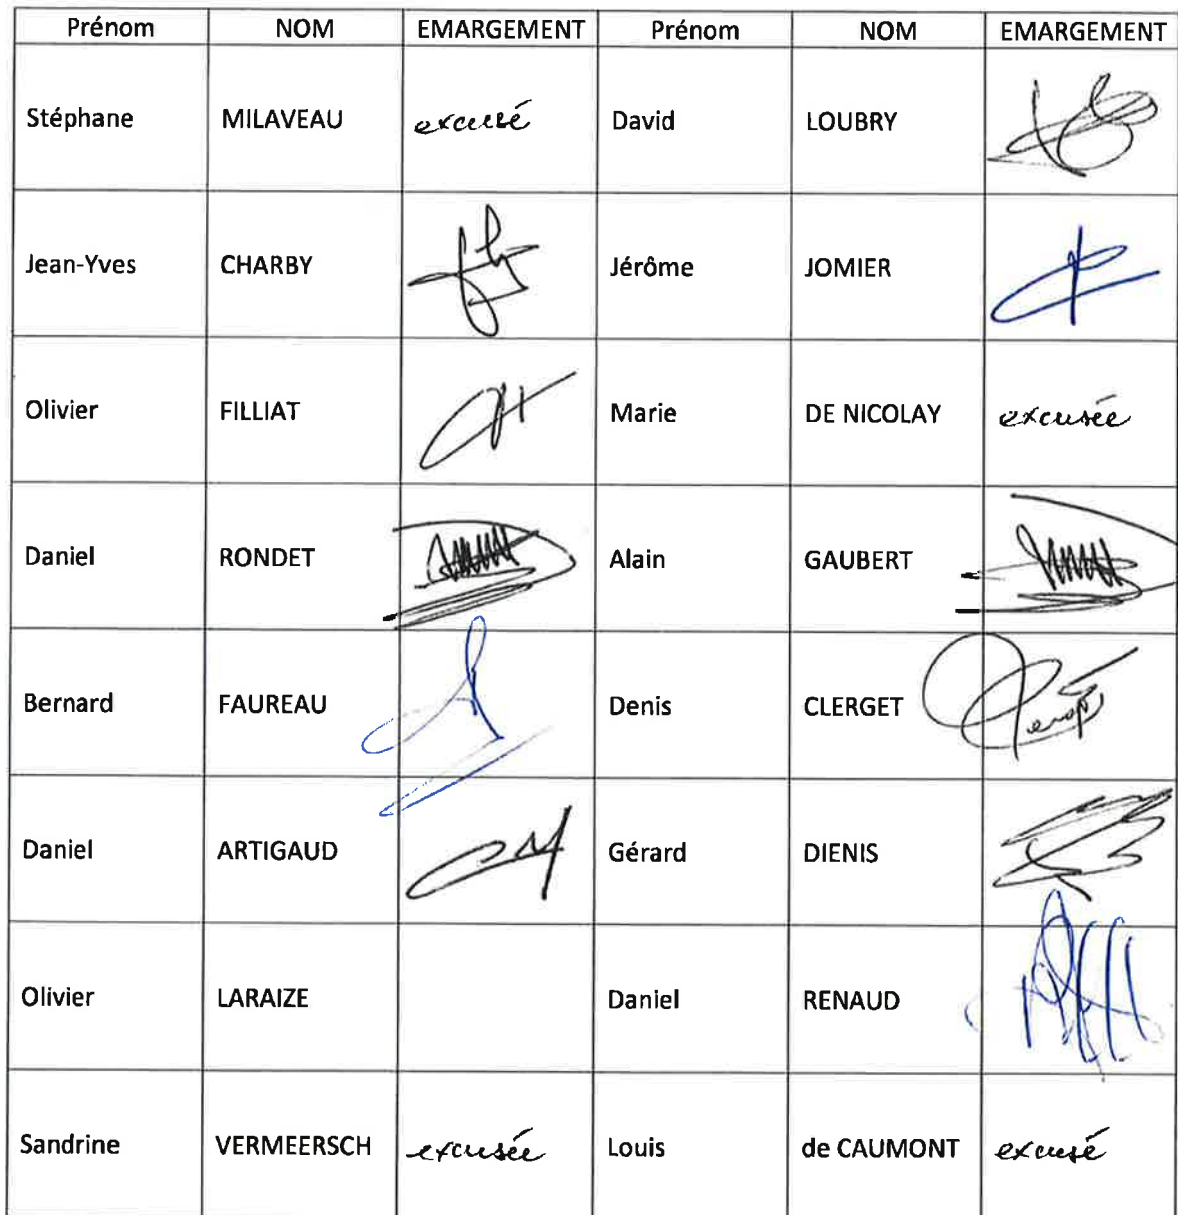 Prénom NOM EMARGEMENT Prénom NOM EMARGEMENT
Stéphane MILAVEAU excusé David LOUBRY
Jean-Yves CHARBY Jérôme JOMIER
Olivier FILLIAT Marie DE NICOLAY excusée
Daniel RONDET Alain GAUBERT
Bernard FAUREAU Denis CLERGET
Daniel ARTIGAUD Gérard DIENIS
Olivier LARAIZE Daniel RENAUD
Sandrine VERMEERSCH excusée Louis de CAUMONT excusé